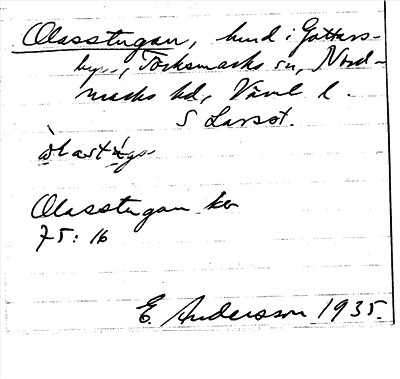 Olasstugan, hmd i Gottars-
byn, Töcksmarks sn, Nord-
marks hd, Värml l.
S Larsöt.
Olasstugan ker
75: 16
E. Andersson 1935.